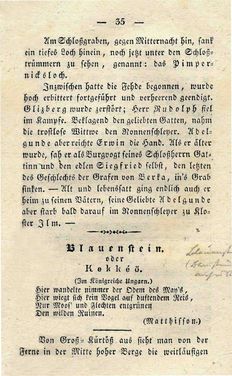 — 35 —
Am Schloßgraben, gegen Mitternacht hin, sank
ein tiefes Loch hinein, noch jetzt unter den Schloß-
trümmern zu sehen, genannt: das Pimper-
nicksloch.
Inzwischen hatte die Fehde begonnen, wurde
hoch erbittert fortgeführt und verheerend geendigt.
Glizberg wurde zerstört; Herr Rudolph fiel
im Kampfe. Beklagend den geliebten Gatten, nahm
die trostlose Wittwe den Nonnenschleyer. Adel-
gunde aber reichte Erwin die Hand. Als er älter
wurde, sah er als Burgvogt seines Schloßherrn Gat-
tinn und den edlen Siegfried selbst, den letzten
des Geschlechts der Grafen von Berka, in's Grab
sinken. — Alt und lebenssatt ging endlich auch er
heim zu seinen Vätern, seine Geliebte Adelgunde
aber starb bald darauf im Nonnenschleyer zu Klo-
ster Ilm. —
Blauenstein.
oder
Kékkeö.
(Im Königreiche Ungarn.)
Hier wandelte nimmer der Odem des May's,
Hier wiegt sich kein Vogel auf duftendem Reis,
Nur Moos' und Flechten entgrünen
Den wilden Ruinen.
(Matthisson.)
Von Groß-Kürtös aus sieht man von der
Ferne in der Mitte hoher Berge die weitläufigen